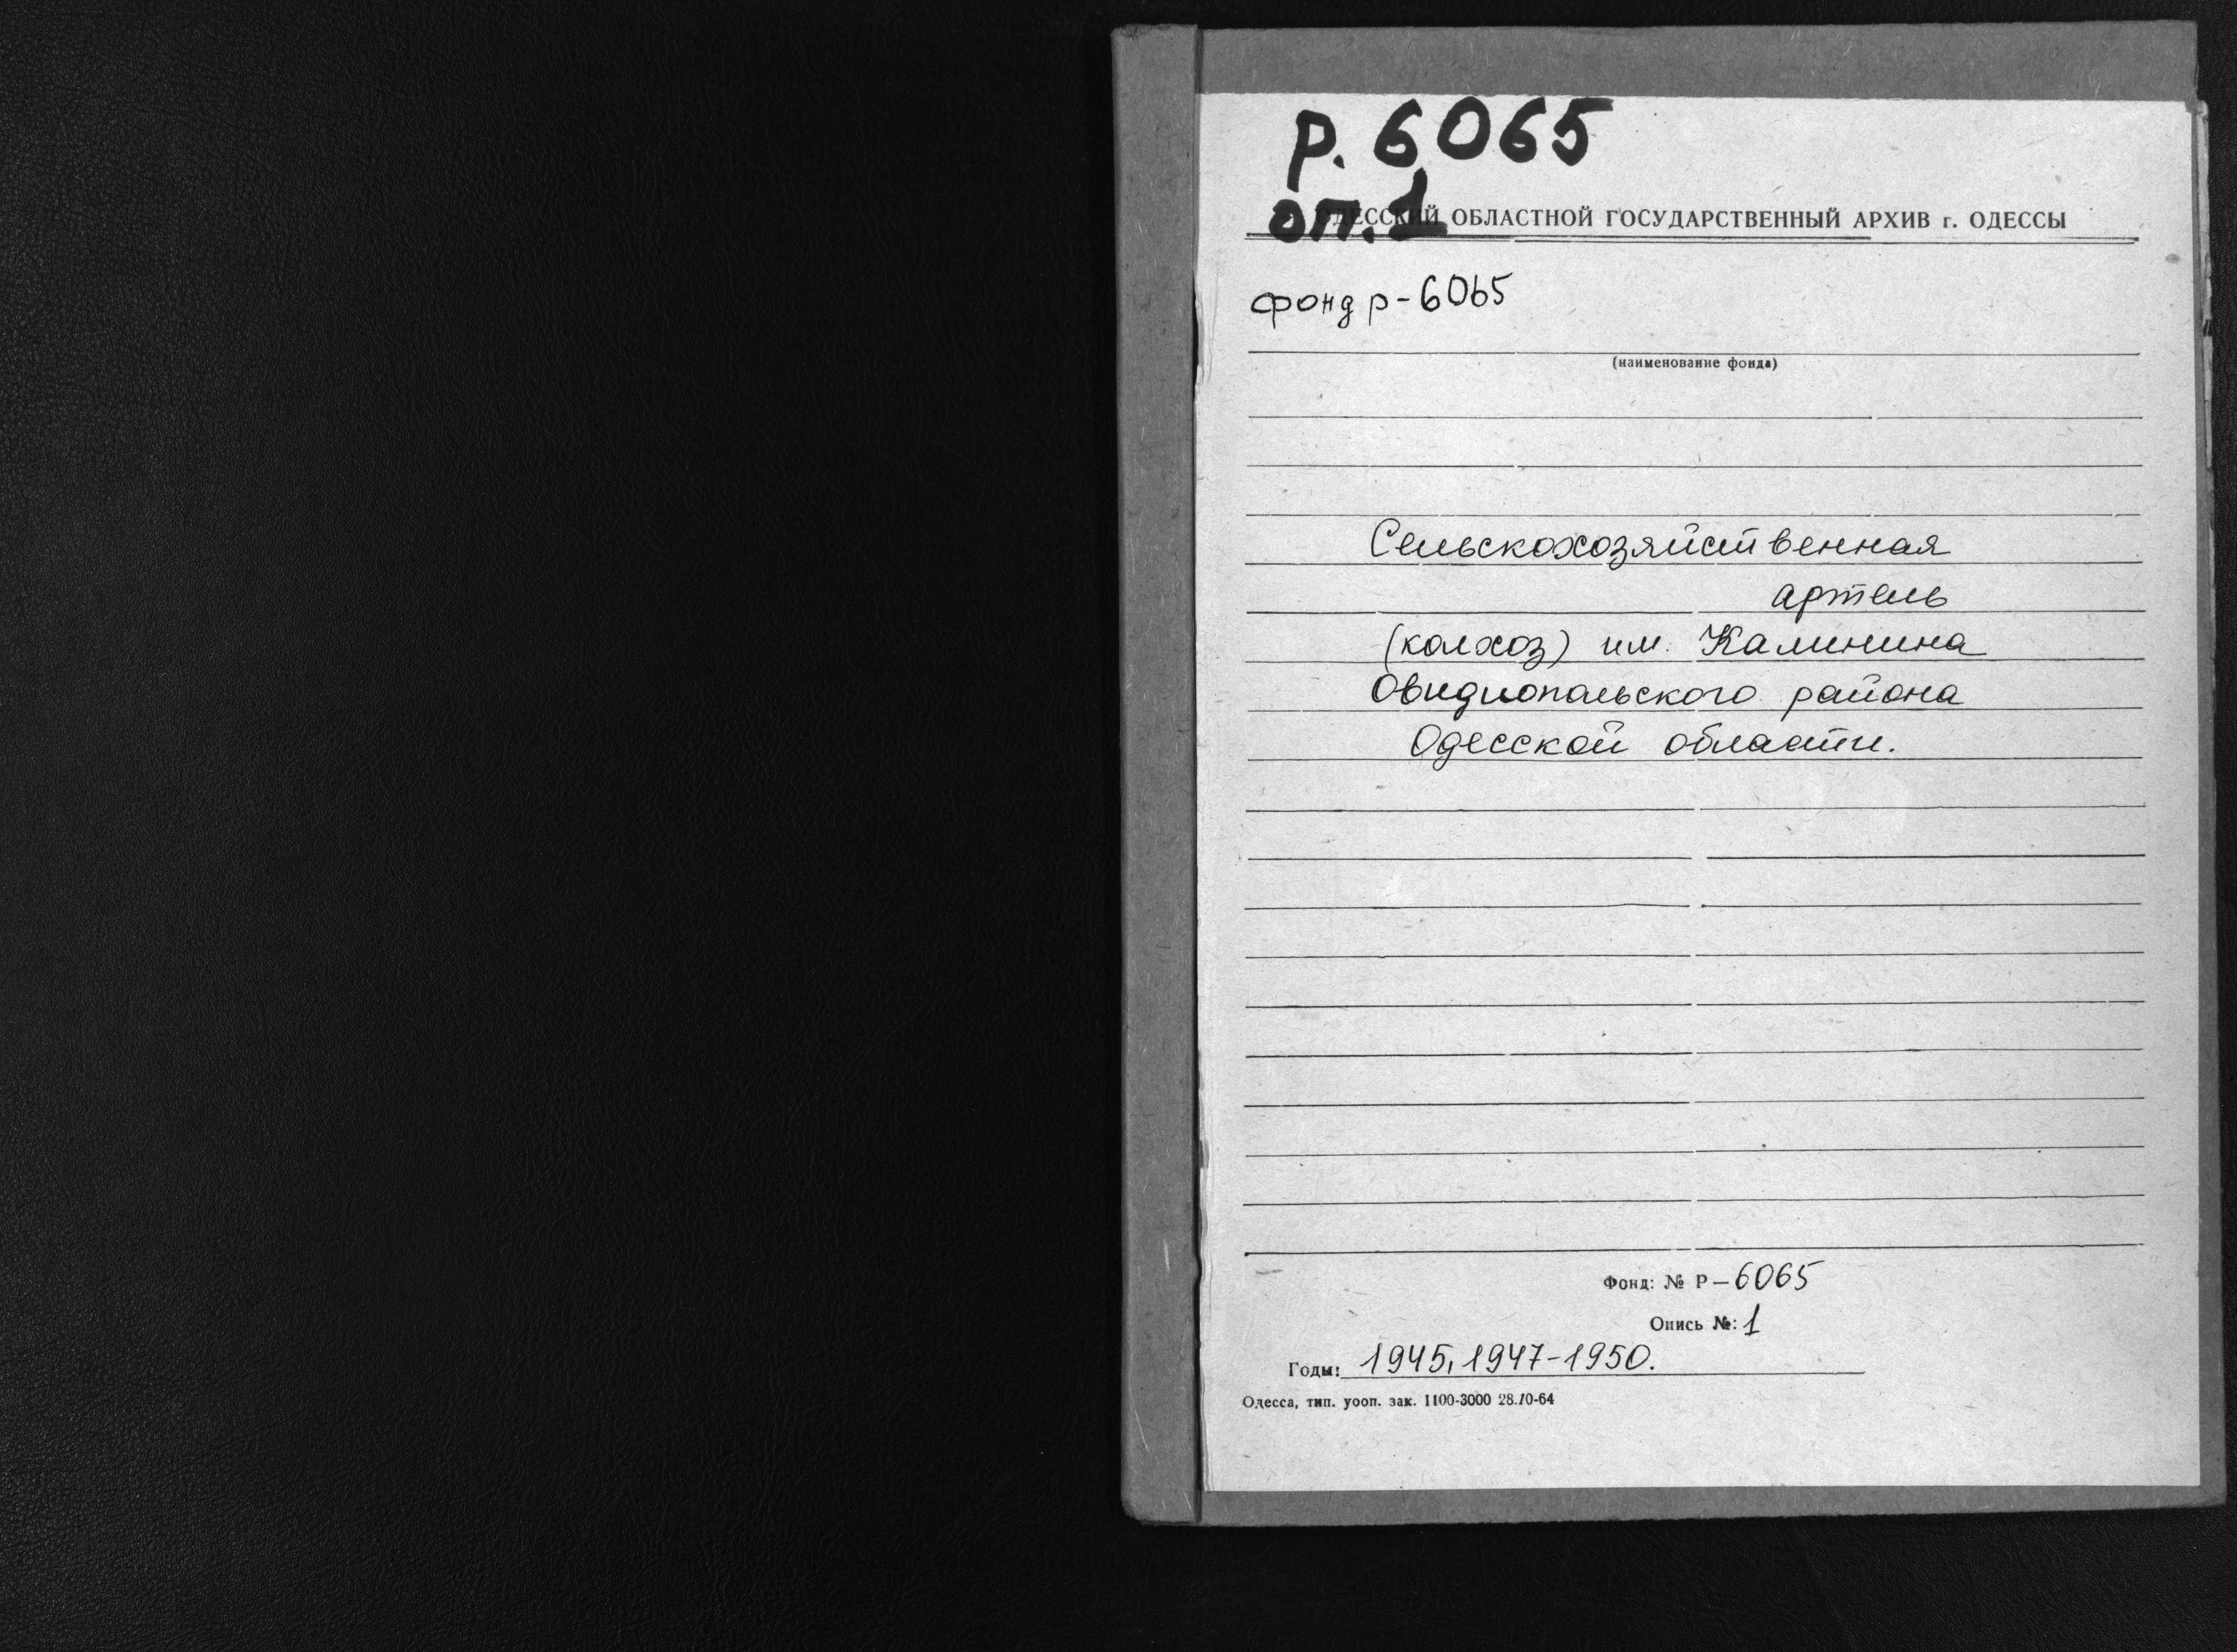 Р. 6065
оп. 1
ОДЕССКИЙ ОБЛАСТНОЙ ГОСУДАРСТВЕННЫЙ АРХИВ г. ОДЕССЫ
фонд р-6065
(наименование фонда)
Сельскохозяйственная
артель
(колхоз) им. Калинина
Овидиопольского района
Одесской области.
Фонд: № Р-6065
Опись №: 1
Годы: 1945, 1947-1950.
Одесса, тип. уооп. зак. 1100-3000 28.10-64